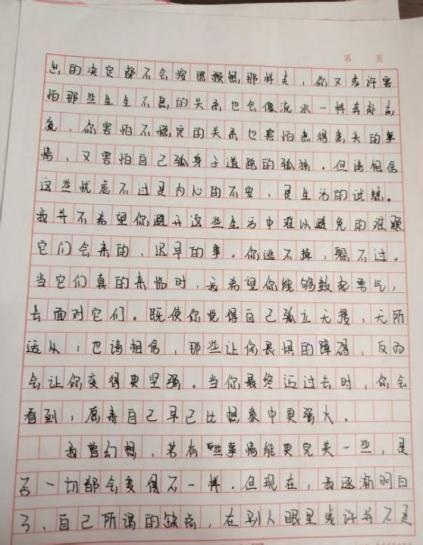 第 页
总的决定都不会按照预想那样走，你又或许害
怕那些生生不息的关系也会像流水一样奔赴而
去，你害怕不稳定的关系也害怕患得患失的事
情，又害怕自己孤身子道路的孤独。但请相信
这些忧虑不过是内心的不安，是生活的试炼。
我并不希望你避开这些生活中难以避免的难题
它们会来的，迟早的事。你逃不掉，躲不过。
当它们真的来临时，我希望你能够鼓起勇气，
去面对它们。既使你觉得自己孤立无援，无所
适从，也请相信，那些让你畏惧的障碍，反而
会让你变得更坚强。当你最终迈过去时，你会
看到，原来自己早已比想象中更强大。
我曾幻想，若有些事情能更完美一些，是
否一切都会变得不一样。但现在，我逐渐明白
了，自己所谓的缺点，在别人眼里或许并不是